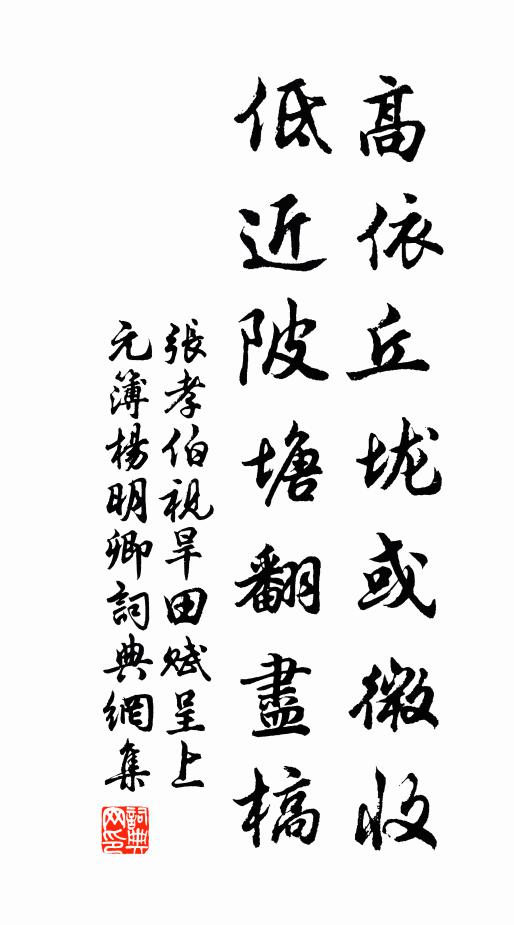 高依丘垅或微收
低近陂塘翻盡槁
張孝伯視旱田賦呈上
元簿楊明卿詞典網集
詞典
网印